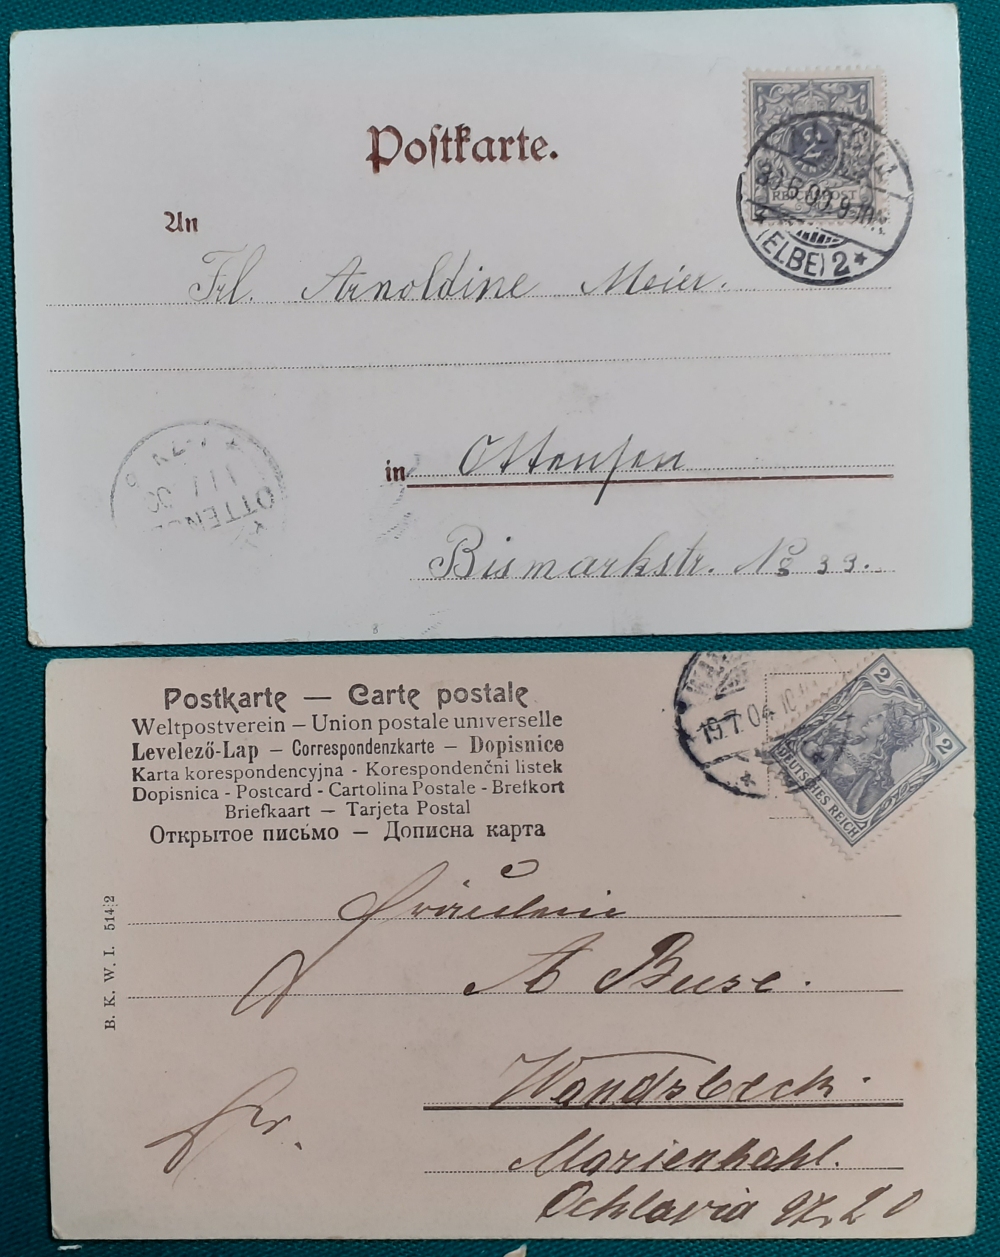 Postkarte.
2
REICHSPOST
(ELBE) 2 *
An
Frl. Arnoldine Meier.
OTTENSE
in Ottensen
Bismarkstr. No 33.
Postkarte — Carte postale
Weltpostverein – Union postale universelle
Levelező-Lap – Correspondenzkarte – Dopisnice
Karta korespondencyjna - Korespondenčni listek
Dopisnica - Postcard - Cartolina Postale - Brefkort
Briefkaart – Tarjeta Postal
Открытое письмо — Дописна карта
19.7.04
2 2
DEUTSCHES REICH
B. K. W. I. 514/2
Fräulein
A Buse.
Wandsbeck.
Fr.